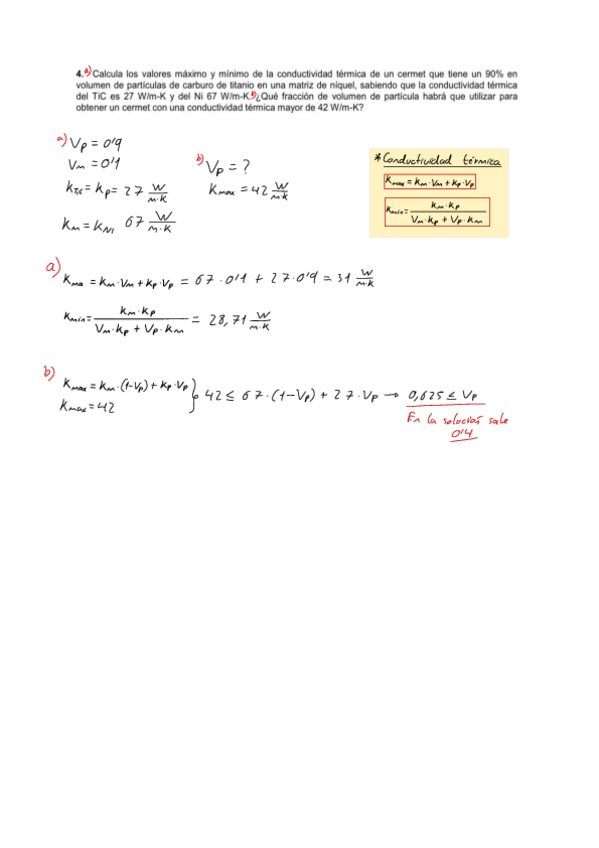 4.a) Calcula los valores máximo y mínimo de la conductividad térmica de un cermet que tiene un 90% en
volumen de partículas de carburo de titanio en una matriz de níquel, sabiendo que la conductividad térmica
del TiC es 27 W/m-K y del Ni 67 W/m-K. b)¿Qué fracción de volumen de partícula habrá que utilizar para
obtener un cermet con una conductividad térmica mayor de 42 W/m-K?
a) Vp = 0'9
Vm = 0'1
kTiC = kp = 27 W/m·K
km = kNi 67 W/m·K
b) Vp = ?
Kmax = 42 W/m·K
* Conductividad térmica
Kmax = km·Vm + kp·Vp
Kmin = km·kp / Vm·kp + Vp·km
a)
Kma = km·Vm + kp·Vp = 67·0'1 + 27·0'9 = 31 W/m·K
Kmin = km·kp / Vm·kp + Vp·km = 28,71 W/m·K
b)
Kmax = km·(1-Vp) + kp·Vp } 42 ≤ 67·(1-Vp) + 27·Vp → 0,625 ≤ Vp
Kmax = 42
En la solución sale
0'4